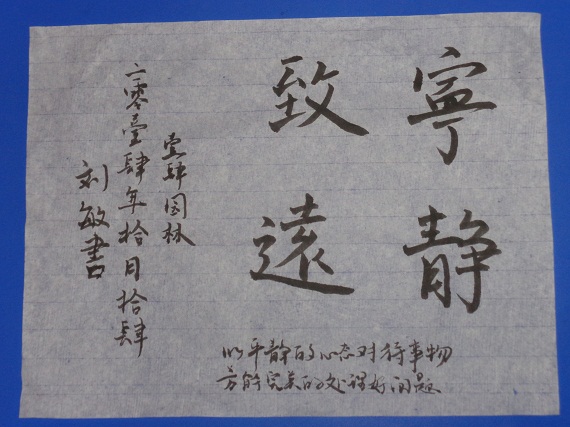 寧靜
致遠
以平静的心态对待事物
方能完美的处理好问题
壹肆园林
二零壹肆年拾月拾肆
刘敏書